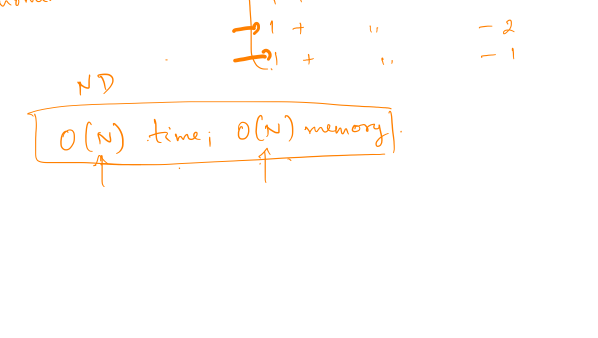 1 + " - 2
1 + " - 1
ND
O(N) time; O(N) memory.